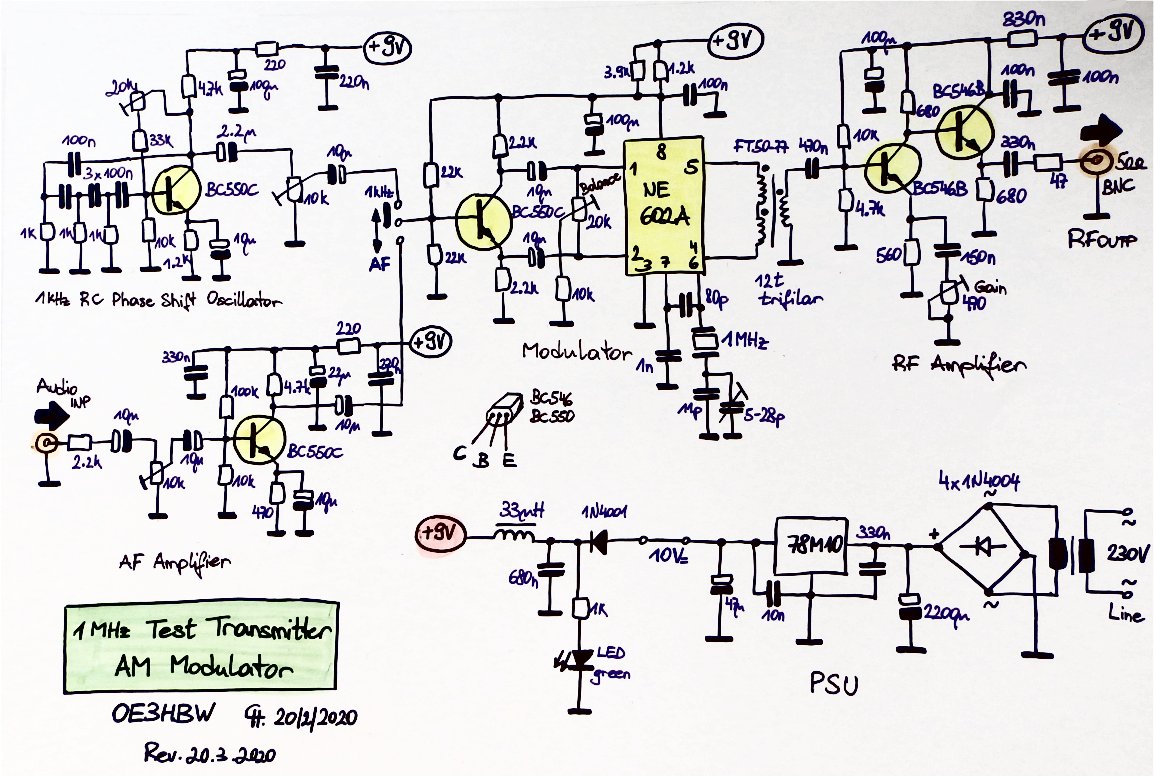 +9V
220
20k
4.7k
100µ
220n
33k
2.2µ
100n
3x100n
BC550C
10µ
10k
1k
1k
1k
10k
1.2k
10µ
1kHz RC Phase Shift Oscillator
1kHz
AF
+9V
3.9k
1.2k
100n
100µ
2.2k
22k
BC550C
10µ
Balance
20k
22k
10µ
2.2k
10k
Modulator
8
1
5
NE
602A
2
3
7
4
6
80p
1n
1MHz
11p
5-28p
FT50-77
470n
12t
trifilar
330n
+9V
100µ
100n
100n
BC546B
680
10k
330n
50Ω
BC546B
47
BNC
4.7k
680
RF OUTP
560
150n
Gain
470
RF Amplifier
220
+9V
330n
22µ
100k
4.7k
10µ
Audio
INP
10µ
2.2k
10µ
10k
BC550C
10k
470
10µ
AF Amplifier
BC546
BC550
C B E
+9V
33µH
1N4001
680n
1k
LED
green
10V=
47µ
10n
78M10
330n
2200µ
4x1N4004
~
+
~
~
230V
~
Line
PSU
1MHz Test Transmitter
AM Modulator
OE3HBW 20/2/2020
Rev. 20.3.2020